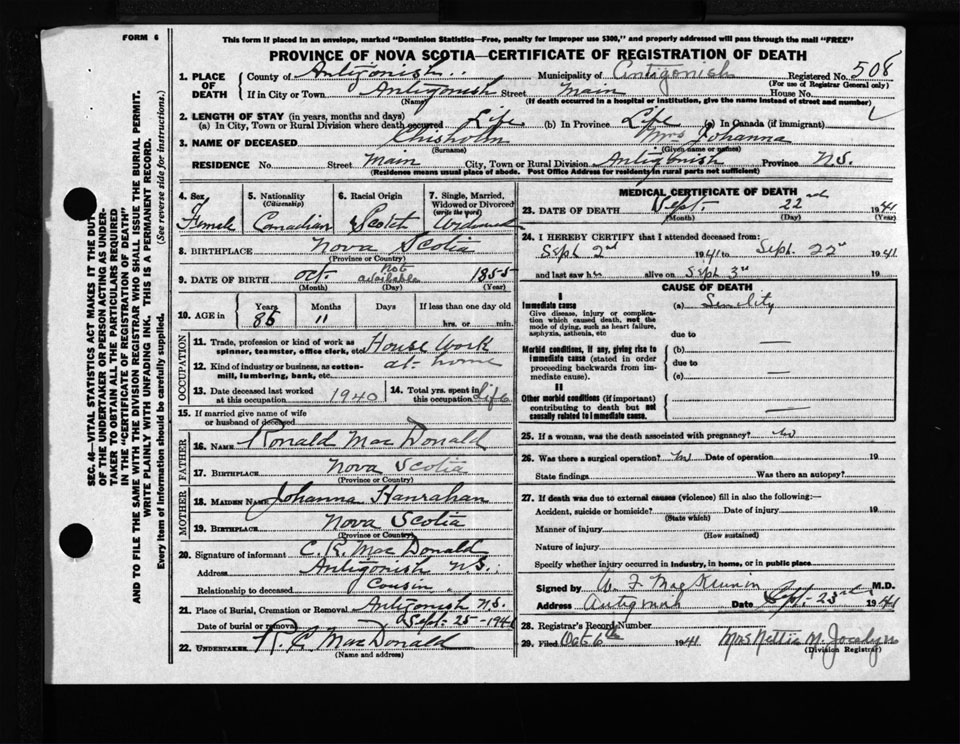 FORM 6
This form if placed in an envelope, marked "Dominion Statistics—Free, penalty for improper use $300," and properly addressed will pass through the mail "FREE"
PROVINCE OF NOVA SCOTIA—CERTIFICATE OF REGISTRATION OF DEATH
1. PLACE OF DEATH County of Antigonish Municipality of Antigonish Registered No. 508
(For use of Registrar General only)
If in City or Town Antigonish Street Main House No.
(Name) (If death occurred in a hospital or institution, give the name instead of street and number)
2. LENGTH OF STAY (in years, months and days)
(a) In City, Town or Rural Division where death occurred Life (b) In Province Life (c) In Canada (if immigrant)
3. NAME OF DECEASED Chisholm Mrs Johanna
(Surname) (Given name or names)
RESIDENCE No. Street Main City, Town or Rural Division Antigonish Province N.S.
(Residence means usual place of abode. Post Office Address for residents in rural parts not sufficient)
4. Sex Female
5. Nationality (Citizenship) Canadian
6. Racial Origin Scotch
7. Single, Married, Widowed or Divorced (write the word) Widowed
8. BIRTHPLACE Nova Scotia
(Province or Country)
9. DATE OF BIRTH Oct. Not available 1855
(Month) (Day) (Year)
10. AGE in Years 85 Months 11 Days If less than one day old hrs. or min.
OCCUPATION
11. Trade, profession or kind of work as spinner, teamster, office clerk, etc. House Work
12. Kind of industry or business, as cotton-mill, lumbering, bank, etc. at home
13. Date deceased last worked at this occupation 1940
14. Total yrs. spent in this occupation Life
15. If married give name of wife or husband of deceased
FATHER
16. NAME Ronald MacDonald
17. BIRTHPLACE Nova Scotia
(Province or Country)
MOTHER
18. MAIDEN NAME Johanna Hanrahan
19. BIRTHPLACE Nova Scotia
(Province or Country)
20. Signature of informant C. R. MacDonald
Address Antigonish N.S.
Relationship to deceased Cousin
21. Place of Burial, Cremation or Removal Antigonish N.S.
Date of burial or removal Sept-25-1941
22. UNDERTAKER R. C. MacDonald
(Name and address)
MEDICAL CERTIFICATE OF DEATH
23. DATE OF DEATH Sept. 22nd 1941
(Month) (Day) (Year)
24. I HEREBY CERTIFY that I attended deceased from:
Sept 2nd 1941 to Sept. 22nd 1941
and last saw her alive on Sept 3rd 19
CAUSE OF DEATH
I
Immediate cause (a) Senility
Give disease, injury or complication which caused death, not the mode of dying, such as heart failure, asphyxia, asthenia, etc
due to —
Morbid conditions, if any, giving rise to immediate cause (stated in order proceeding backwards from immediate cause). (b)
due to
(c) —
II
Other morbid conditions (if important) contributing to death but not causally related to immediate cause. —
25. If a woman, was the death associated with pregnancy? No
26. Was there a surgical operation? No Date of operation 19
State findings Was there an autopsy?
27. If death was due to external causes (violence) fill in also the following:—
Accident, suicide or homicide? Date of injury 19
(State which)
Manner of injury
(How sustained)
Nature of injury
Specify whether injury occurred in industry, in home, or in public place
Signed by W. F. MacKinnon M.D.
Address Antigonish Date Sept. 23rd 1941
28. Registrar's Record Number
29. Filed Oct 6th 1941 Mrs Nellie M. Jocelyn
(Division Registrar)
SEC. 46—VITAL STATISTICS ACT MAKES IT THE DUTY
OF THE UNDERTAKER OR PERSON ACTING AS UNDER-
TAKER TO OBTAIN ALL THE PARTICULARS REQUIRED
IN THE "CERTIFICATE OF REGISTRATION OF DEATH"
AND TO FILE THE SAME WITH THE DIVISION REGISTRAR WHO SHALL ISSUE THE BURIAL PERMIT.
WRITE PLAINLY WITH UNFADING INK. THIS IS A PERMANENT RECORD.
Every item of information should be carefully supplied. (See reverse side for instructions.)